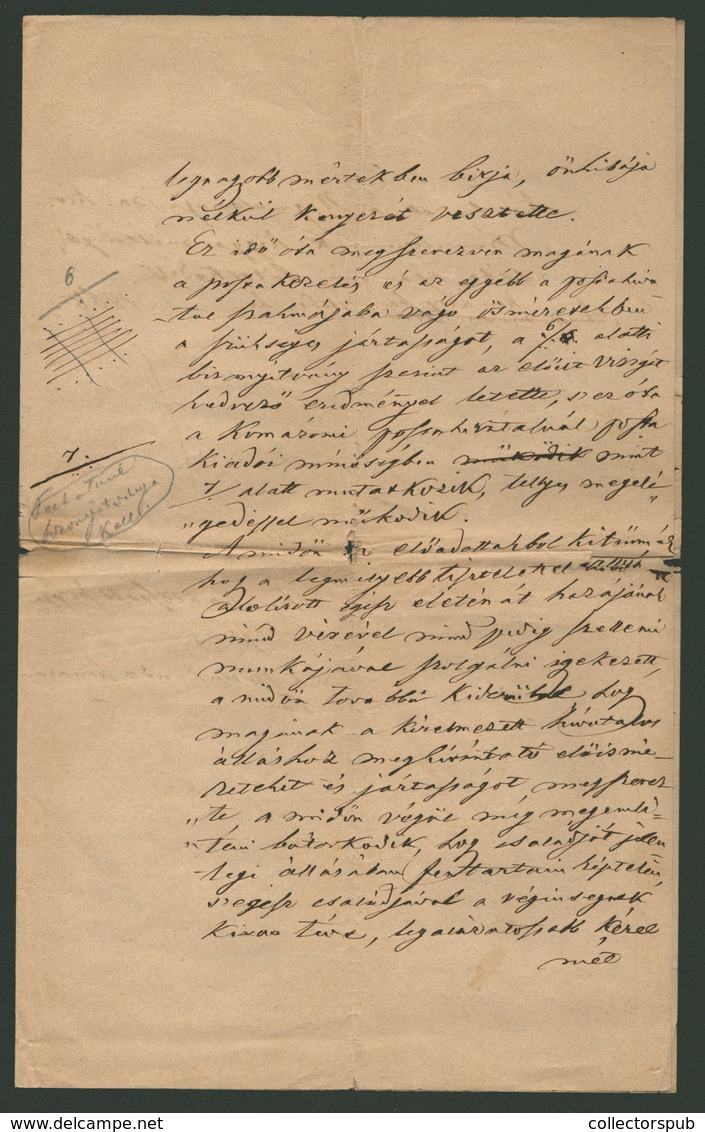 legnagyobb mértékben birja, önhibája
nélkül kenyerét vesztette.
Ez idő óta megszerezvén magának
a posta kezelés és az egyébb a postahiva
-tal szakmájába vágó ismeretekben
a szükséges jártasságot, a 6/. alatti
bizonyitvány szerint az előirt vizsgát
kedvező eredménnyel letette, s ez óta
a Komáromi postahivatalnál posta
kiadói minőségben működik mint
7/ alatt mutatkozik, teljes megelé
„gedéssel működik.
A midőn az előadottakbol kitünnék
hogy a legmélyebb tisztelettel
alolirott egész életén át hazájának
mind vérével mind pedig szellemi
munkájával szolgálni igekezett,
a midőn továbbá kiderült hogy
magának a kérelmezett hivatalos
álláshoz megkivántató előismé-
reteket és jártasságot megszerez-
„te, a midőn végül még megemli-
„teni bátorkodik, hogy családját jelen
-legi állásában fenttartani képtelen
s egész családjával a végínségnek
kitéve, legalázatosabb kérel
mét
6
7.
bizonyitványa
kell.
collectorspub